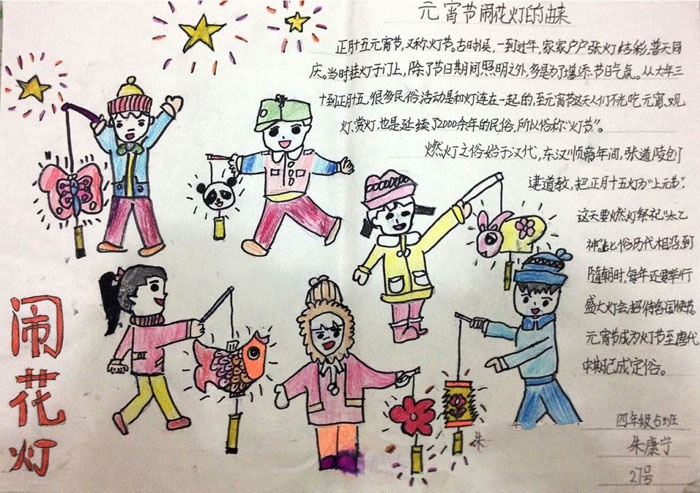 元宵节闹花灯的由来
正月十五元宵节,又称灯节,古时候,一到过年,家家户户张灯结彩,普天同
庆。当时挂灯于门上,除了节日期间照明之外,多是为了增添节日气氛。从大年三
十到正月十五,很多民俗活动是和灯连在一起的,至元宵节这天人们不光吃元宵、观
灯、赏灯,也是延续了2000余年的民俗,所以俗称"灯节"。
燃灯之俗始于汉代,东汉顺帝年间,张道陵创
建道教,把正月十五灯为"上元节"。
这天要燃灯祭祀"太乙
神"。此俗历代相沿到
隋朝时,每年还要举行
盛大灯会,招待各国使节
元宵节成为灯节至唐代
中期已成定俗。
四年级5班
朱康宁
27号
闹花灯
朱